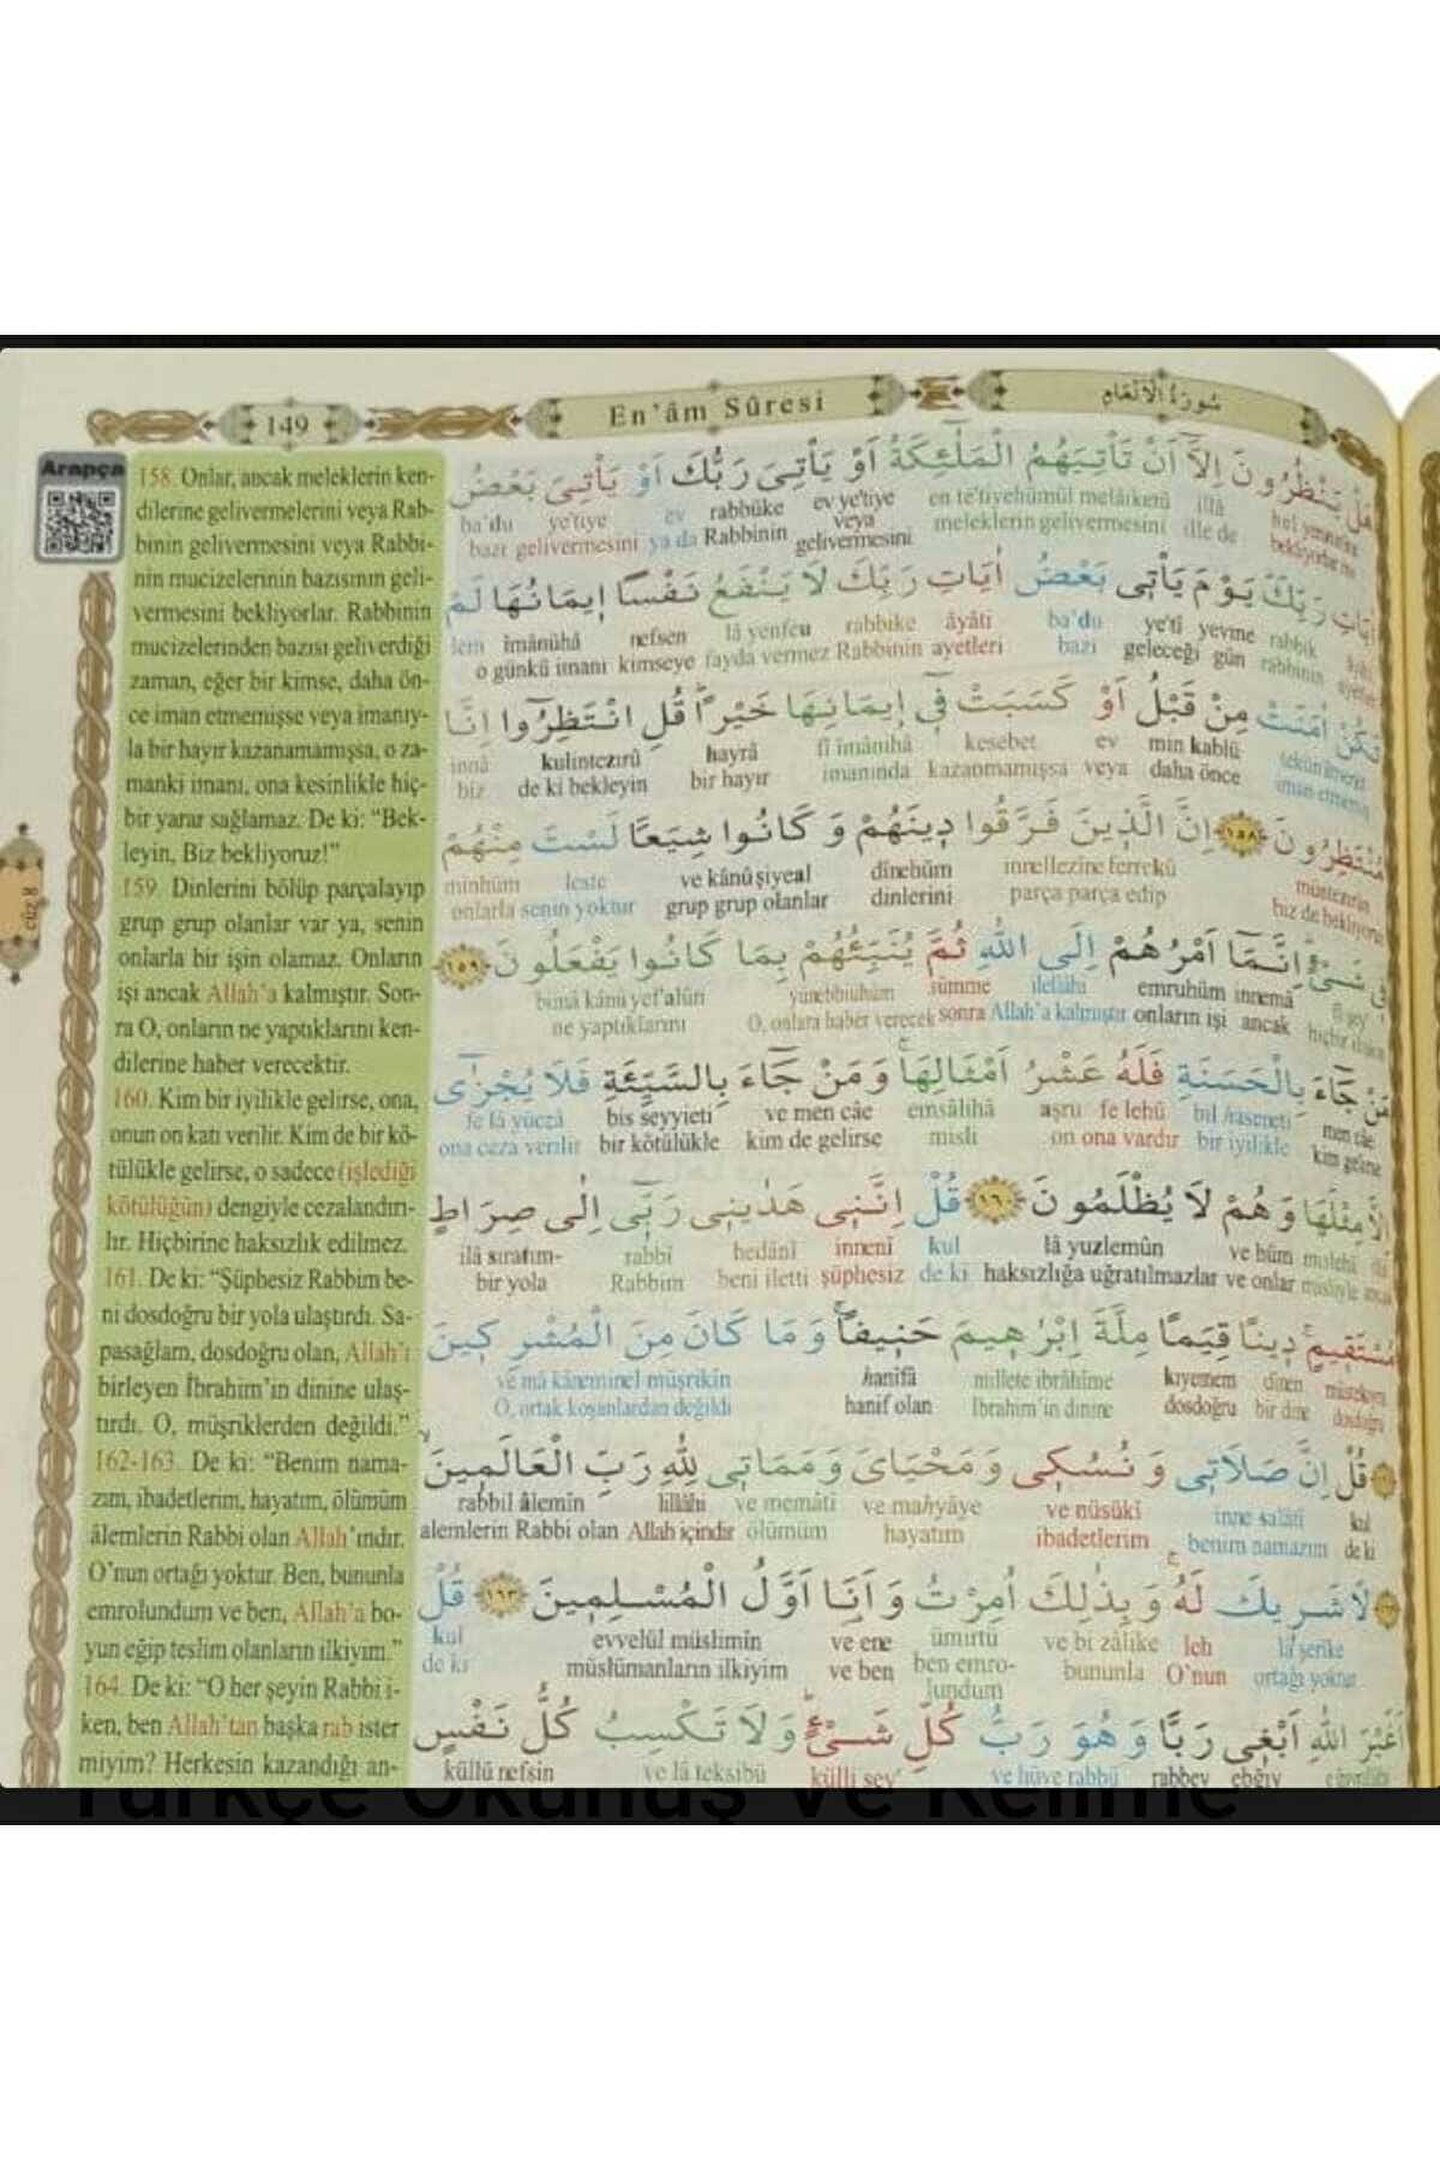 149
En'âm Sûresi
سُورَةُ الْاَنْعَامِ
Arapça
cüz 8
158. Onlar, ancak meleklerin ken-
dilerine gelivermelerini veya Rab-
binin gelivermesini veya Rabbi-
nin mucizelerinin bazısının geli-
vermesini bekliyorlar. Rabbinin
mucizelerinden bazısı geliverdiği
zaman, eğer bir kimse, daha ön-
ce iman etmemişse veya imanıy-
la bir hayır kazanamamışsa, o za-
manki imanı, ona kesinlikle hiç-
bir yarar sağlamaz. De ki: “Bek-
leyin, Biz bekliyoruz!”
159. Dinlerini bölüp parçalayıp
grup grup olanlar var ya, senin
onlarla bir işin olamaz. Onların
işi ancak Allah’a kalmıştır. Son-
ra O, onların ne yaptıklarını ken-
dilerine haber verecektir.
160. Kim bir iyilikle gelirse, ona,
onun on katı verilir. Kim de bir kö-
tülükle gelirse, o sadece (işlediği
kötülüğün) dengiyle cezalandırı-
lır. Hiçbirine haksızlık edilmez.
161. De ki: “Şüphesiz Rabbim be-
ni dosdoğru bir yola ulaştırdı. Sa-
pasağlam, dosdoğru olan, Allah’ı
birleyen İbrahim’in dinine ulaş-
tırdı. O, müşriklerden değildi.”
162-163. De ki: “Benim nama-
zım, ibadetlerim, hayatım, ölümüm
âlemlerin Rabbi olan Allah’ındır.
O’nun ortağı yoktur. Ben, bununla
emrolundum ve ben, Allah’a bo-
yun eğip teslim olanların ilkiyim.”
164. De ki: “O her şeyin Rabbi i-
ken, ben Allah’tan başka rab ister
miyim? Herkesin kazandığı an-
هَلْ يَنْظُرُونَ اِلَّٓا اَنْ تَأْتِيَهُمُ الْمَلٰٓئِكَةُ اَوْ يَأْتِيَ رَبُّكَ اَوْ يَأْتِيَ بَعْضُ
illâ en te'tiyehümül melâiketü ev ye'tiye rabbüke ev ye'tiye ba'du
bekliyorlar mı ille de meleklerin gelivermesini veya gelivermesini Rabbinin ya da bazı gelivermesini
اٰيَاتِ رَبِّكَ يَوْمَ يَأْتٖي بَعْضُ اٰيَاتِ رَبِّكَ لَا يَنْفَعُ نَفْسًا اٖيمَانُهَا لَمْ
rabbik yevme ye'tî ba'du âyâti rabbike lâ yenfeu nefsen îmânühâ lem
rabbinin gün geleceği bazı ayetleri Rabbinin fayda vermez kimseye o günkü imanı
تَكُنْ اٰمَنَتْ مِنْ قَبْلُ اَوْ كَسَبَتْ فٖٓي اٖيمَانِهَا خَيْرًا قُلِ انْتَظِرُٓوا اِنَّا
min kablü ev kesebet fî îmânihâ hayrâ kulintezırû innâ
daha önce veya kazanmamışsa imanında bir hayır de ki bekleyin biz
مُنْتَظِرُونَ ﴿١٥٨﴾ اِنَّ الَّذٖينَ فَرَّقُوا دٖينَهُمْ وَكَانُوا شِيَعًا لَسْتَ مِنْهُمْ
innellezîne ferrekû dînehüm ve kânû şiyeal leste minhüm
biz de bekliyoruz parça parça edip dinlerini grup grup olanlar senin yoktur onlarla
فٖي شَيْءٍ اِنَّمَٓا اَمْرُهُمْ اِلَى اللّٰهِ ثُمَّ يُنَبِّئُهُمْ بِمَا كَانُوا يَفْعَلُونَ ﴿١٥٩﴾
fî şey innemâ emruhüm ilellâhi sümme yünebbiuhüm bimâ kânû yef'alûn
ancak onların işi Allah'a kalmıştır sonra O, onlara haber verecek ne yaptıklarını
مَنْ جَٓاءَ بِالْحَسَنَةِ فَلَهُ عَشْرُ اَمْثَالِهَا وَمَنْ جَٓاءَ بِالسَّيِّئَةِ فَلَا يُجْزٰٓى
men câe bil haseneti fe lehû aşru emsâlihâ ve men câe bis seyyieti fe lâ yüczâ
kim gelirse bir iyilikle ona vardır on misli kim de gelirse bir kötülükle ona ceza verilir
اِلَّا مِثْلَهَا وَهُمْ لَا يُظْلَمُونَ ﴿١٦٠﴾ قُلْ اِنَّنٖي هَدٰينٖي رَبّٖٓي اِلٰى صِرَاطٍ
mislehâ ve hüm lâ yuzlemûn kul innenî hedânî rabbî ilâ sıratım-
misliyle ancak ve onlar haksızlığa uğratılmazlar de ki şüphesiz beni iletti Rabbim bir yola
مُسْتَقٖيمٍ دٖينًا قِيَمًا مِلَّةَ اِبْرٰهٖيمَ حَنٖيفًا وَمَا كَانَ مِنَ الْمُشْرِكٖينَ
müstekıym dînen kıyemem millete ibrâhîme hanîfâ ve mâ kâne minel müşrikîn
dosdoğru bir dine dosdoğru İbrahim'in dinine hanif olan O, ortak koşanlardan değildi
قُلْ اِنَّ صَلَاتٖي وَنُسُكٖي وَمَحْيَايَ وَمَمَاتٖي لِلّٰهِ رَبِّ الْعَالَمٖينَ
kul inne salâtî ve nüsükî ve mahyâye ve memâtî lillâhi rabbil âlemîn
de ki benim namazım ibadetlerim hayatım ölümüm Allah içindir alemlerin Rabbi olan
لَا شَرٖيكَ لَهُ وَبِذٰلِكَ اُمِرْتُ وَاَنَا اَوَّلُ الْمُسْلِمٖينَ ﴿١٦٣﴾ قُلْ
lâ şerîke leh ve bi zâlike ümirtü ve ene evvelül müslimîn kul
ortağı yoktur O'nun bununla ben emro-lundum ve ben müslümanların ilkiyim de ki
اَغَيْرَ اللّٰهِ اَبْغٖي رَبًّا وَهُوَ رَبُّ كُلِّ شَيْءٍ وَلَا تَكْسِبُ كُلُّ نَفْسٍ
ebğıy rabbev ve hüve rabbü külli şey' ve lâ teksibü küllü nefsin